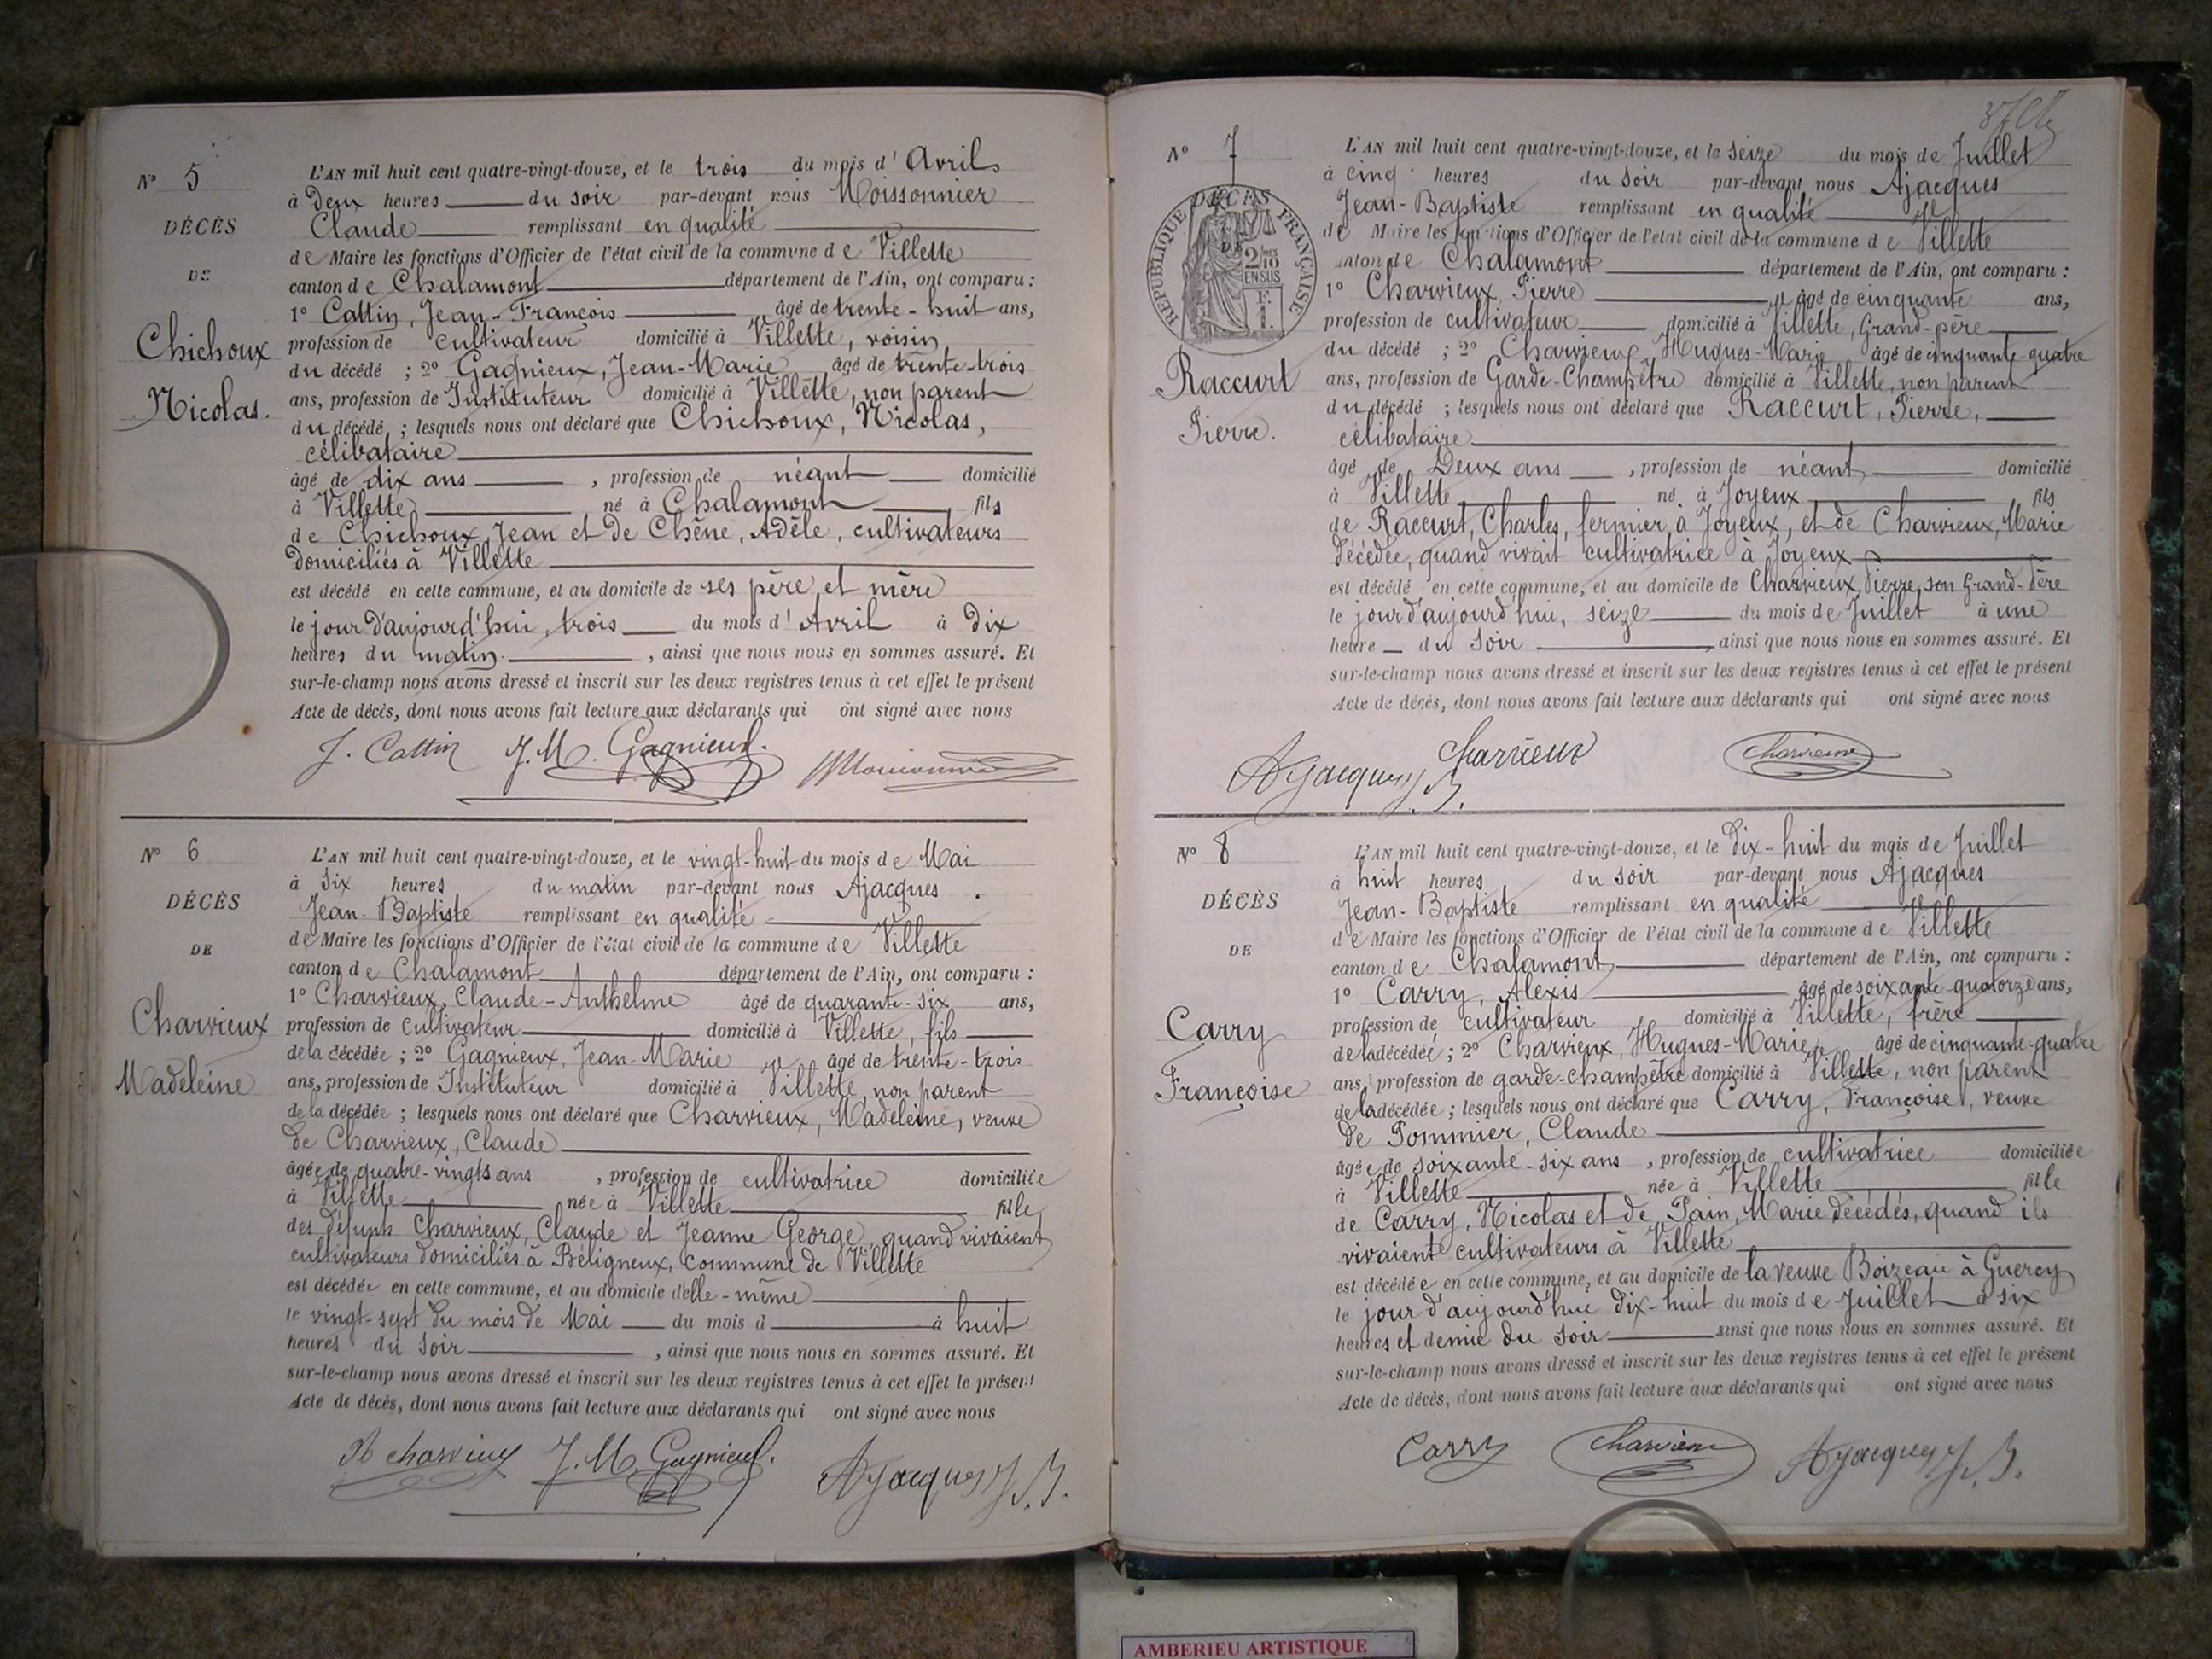 N° 5
DÉCÈS
DE
Chichoux
Nicolas.
L'AN mil huit cent quatre-vingt-douze, et le trois du mois d'Avril
à Deux heures du soir par-devant nous Moissonnier
Claude remplissant en qualité
de Maire les fonctions d'Officier de l'état civil de la commune de Villette
canton de Chalamont département de l'Ain, ont comparu :
1° Cattin, Jean-François âgé de trente-huit ans,
profession de cultivateur domicilié à Villette, voisin
du décédé ; 2° Gagnieux, Jean-Marie âgé de trente-trois
ans, profession de Instituteur domicilié à Villette, non parent
du décédé ; lesquels nous ont déclaré que Chichoux, Nicolas,
célibataire
âgé de dix ans , profession de néant domicilié
à Villette né à Chalamont fils
de Chichoux, Jean et de Chêne, Adèle, cultivateurs
domiciliés à Villette
est décédé en cette commune, et au domicile de ses père et mère
le jour d'aujourd'hui, trois du mois d'Avril à Dix
heures du matin. , ainsi que nous nous en sommes assuré. Et
sur-le-champ nous avons dressé et inscrit sur les deux registres tenus à cet effet le présent
Acte de décès, dont nous avons fait lecture aux déclarants qui ont signé avec nous
J. Cattin J. M. Gagnieux.
N° 6
DÉCÈS
DE
Charvieux
Madeleine
L'AN mil huit cent quatre-vingt-douze, et le vingt-huit du mois de Mai
à six heures du matin par-devant nous Ajacques
Jean-Baptiste remplissant en qualité
de Maire les fonctions d'Officier de l'état civil de la commune de Villette
canton de Chalamont département de l'Ain, ont comparu :
1° Charvieux, Claude-Anthelme âgé de quarante-six ans,
profession de cultivateur domicilié à Villette, fils
de la décédée ; 2° Gagnieux, Jean-Marie âgé de trente-trois
ans, profession de Instituteur domicilié à Villette, non parent
de la décédée ; lesquels nous ont déclaré que Charvieux, Madeleine, veuve
de Charvieux, Claude
âgée de quatre-vingts ans , profession de cultivatrice domiciliée
à Villette née à Villette fille
des défunts Charvieux, Claude et Jeanne George, quand vivaient
cultivateurs domiciliés à Béligneux, commune de Villette
est décédée en cette commune, et au domicile d'elle-même
le vingt-sept du mois de Mai du mois d à huit
heures du soir , ainsi que nous nous en sommes assuré. Et
sur-le-champ nous avons dressé et inscrit sur les deux registres tenus à cet effet le présent
Acte de décès, dont nous avons fait lecture aux déclarants qui ont signé avec nous
J. M. Gagnieux. Ajacques J. B.
N° 7
RÉPUBLIQUE FRANÇAISE
2/10 EN SUS
DÉCÈS
DE
Raccurt
Pierre.
L'AN mil huit cent quatre-vingt-douze, et le seize du mois de Juillet
à cinq heures du soir par-devant nous Ajacques
Jean-Baptiste remplissant en qualité
de Maire les fonctions d'Officier de l'état civil de la commune de Villette
canton de Chalamont département de l'Ain, ont comparu :
1° Charvieux, Pierre âgé de cinquante ans,
profession de cultivateur domicilié à Villette, Grand-père
du décédé ; 2° Charvieux, Hugues-Marie âgé de cinquante-quatre
ans, profession de Garde-Champêtre domicilié à Villette, non parent
du décédé ; lesquels nous ont déclaré que Raccurt, Pierre,
célibataire
âgé de Deux ans , profession de néant domicilié
à Villette né à Joyeux fils
de Raccurt, Charles, fermier à Joyeux, et de Charvieux, Marie
décédée, quand vivait cultivatrice à Joyeux
est décédé en cette commune, et au domicile de Charvieux, Pierre, son Grand-Père
le jour d'aujourd'hui, seize du mois de Juillet à une
heure du soir , ainsi que nous nous en sommes assuré. Et
sur-le-champ nous avons dressé et inscrit sur les deux registres tenus à cet effet le présent
Acte de décès, dont nous avons fait lecture aux déclarants qui ont signé avec nous
Ajacques J. B. Charvieux Charvieux
N° 8
DÉCÈS
DE
Carry
Françoise
L'AN mil huit cent quatre-vingt-douze, et le Dix-huit du mois de Juillet
à huit heures du soir par-devant nous Ajacques
Jean-Baptiste remplissant en qualité
de Maire les fonctions d'Officier de l'état civil de la commune de Villette
canton de Chalamont département de l'Ain, ont comparu :
1° Carry, Alexis âgé de soixante-quatorze ans,
profession de cultivateur domicilié à Villette, frère
de la décédée ; 2° Charvieux, Hugues-Marie, âgé de cinquante-quatre
ans, profession de garde-champêtre domicilié à Villette, non parent
de la décédée ; lesquels nous ont déclaré que Carry, Françoise, veuve
de Pommier, Claude
âgée de soixante-six ans , profession de cultivatrice domiciliée
à Villette née à Villette fille
de Carry, Nicolas et de Pain, Marie décédés, quand ils
vivaient cultivateurs à Villette
est décédée en cette commune, et au domicile de la veuve Boizeau à Guercy
le jour d'aujourd'hui Dix-huit du mois de Juillet à six
heures et demie du soir ainsi que nous nous en sommes assuré. Et
sur-le-champ nous avons dressé et inscrit sur les deux registres tenus à cet effet le présent
Acte de décès, dont nous avons fait lecture aux déclarants qui ont signé avec nous
Carry Charvieux Ajacques J. B.
AMBERIEU ARTISTIQUE